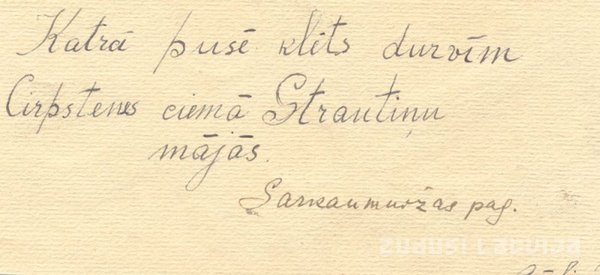 Katrā pusē klēts durvīm
Cirpstenes ciemā Strautiņu
mājās.
Sarkanmuožas pag.
zudusi Latvija